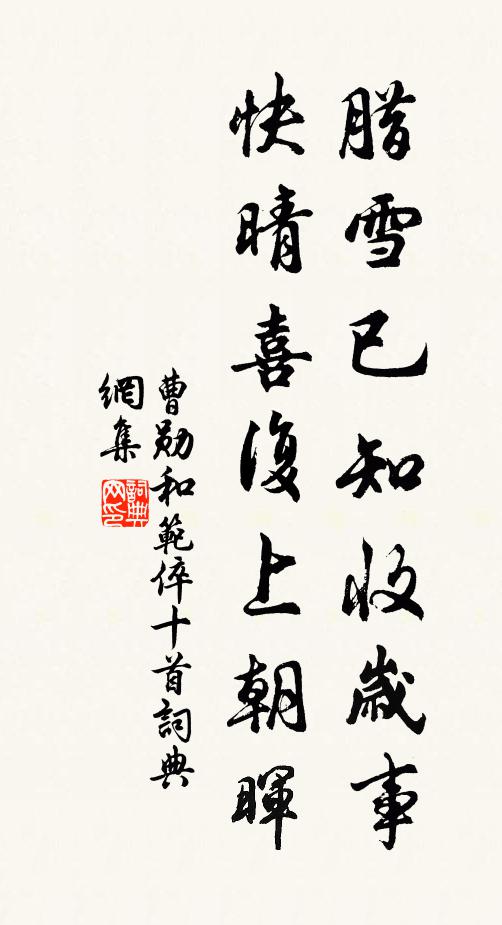 腊雪已知收歲事
快晴喜復上朝暉
曹勛和範倅十首詞典
網集
詞典网印